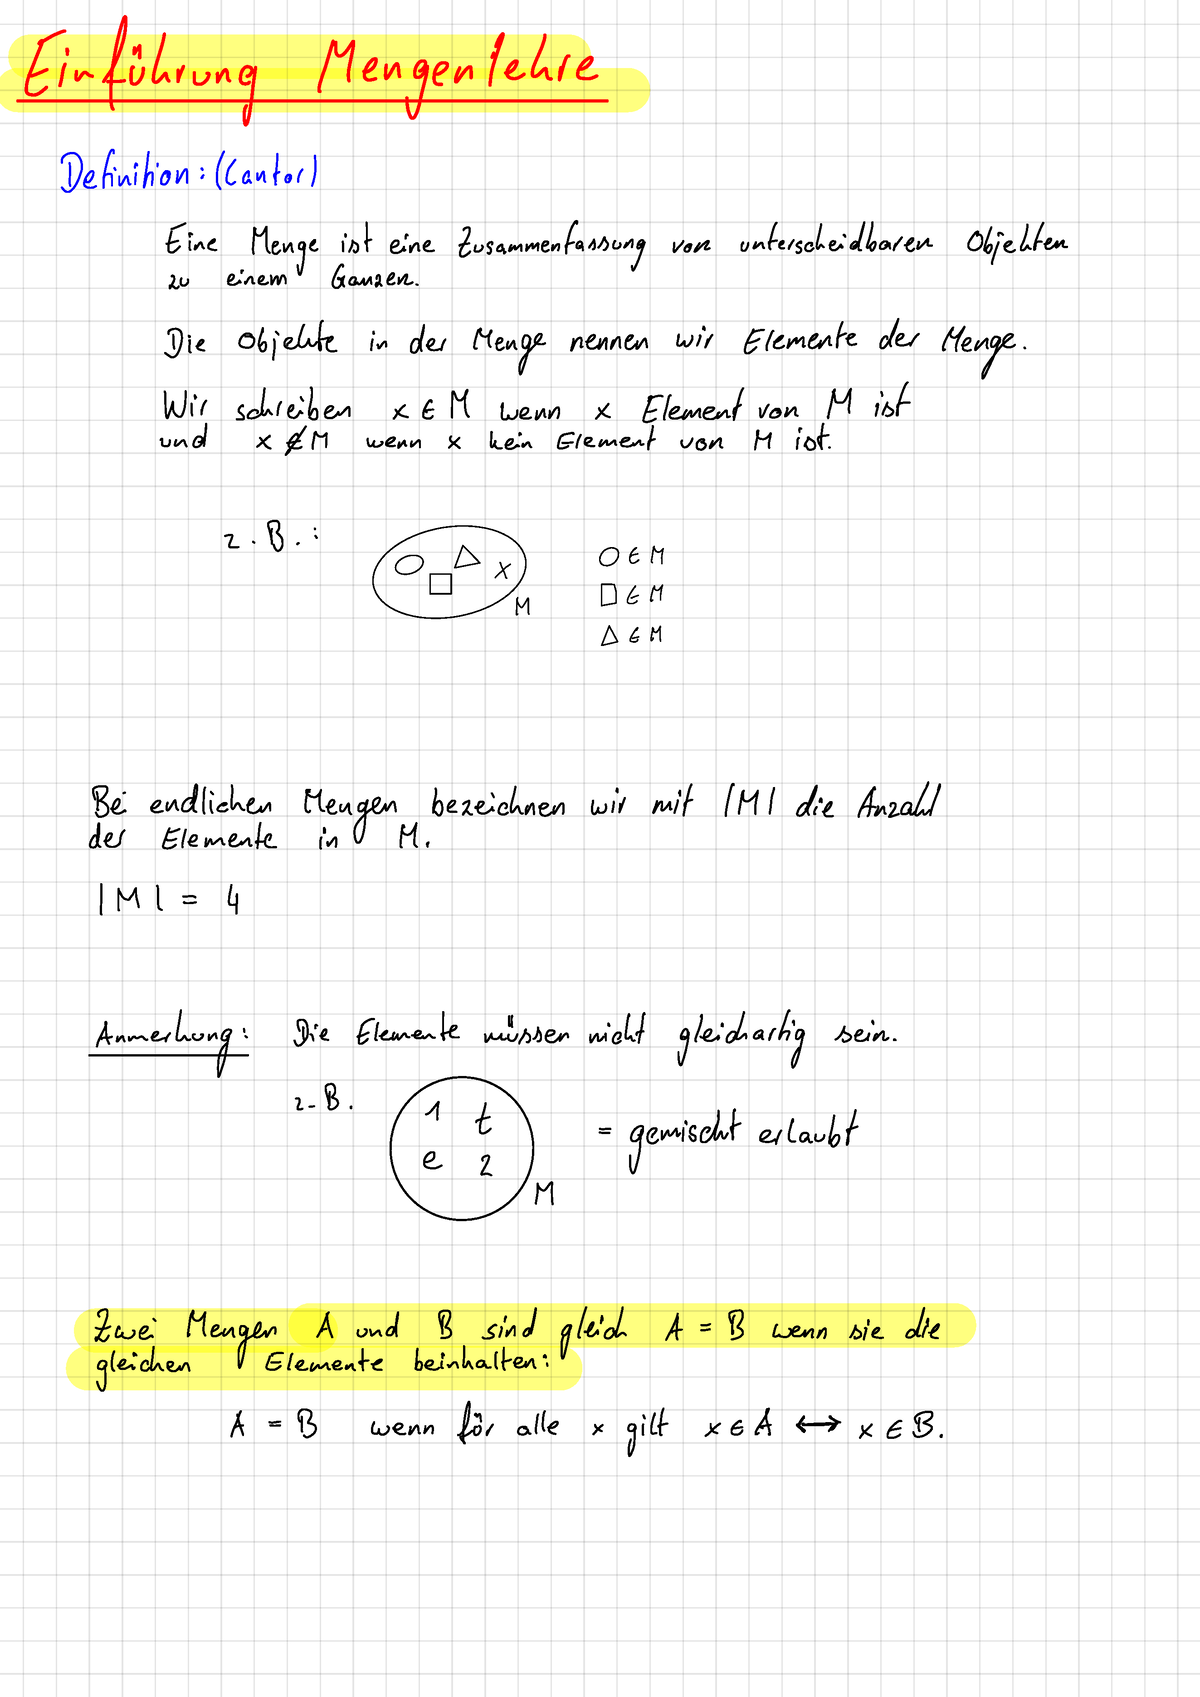 Einführung Mengenlehre
Definition: (Cantor)
Eine Menge ist eine Zusammenfassung von unterscheidbaren Objekten
zu einem Ganzen.
Die Objekte in der Menge nennen wir Elemente der Menge.
Wir schreiben x ∈ M wenn x Element von M ist
und x ∉ M wenn x kein Element von M ist.
z. B. :
x
M
○ ∈ M
□ ∈ M
△ ∈ M
Bei endlichen Mengen bezeichnen wir mit |M| die Anzahl
der Elemente in M.
|M| = 4
Anmerkung: Die Elemente müssen nicht gleichartig sein.
z. B.
1 t
e 2
M
= gemischt erlaubt
Zwei Mengen A und B sind gleich A = B wenn sie die
gleichen Elemente beinhalten:
A = B wenn für alle x gilt x ∈ A ↔ x ∈ B.